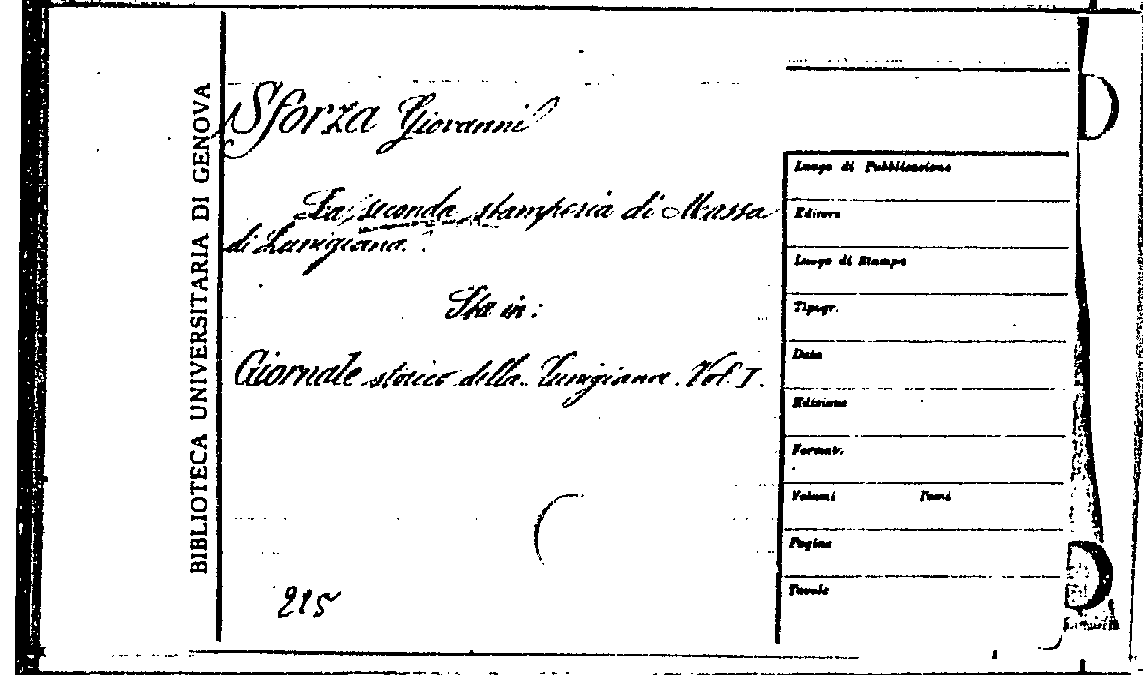 BIBLIOTECA UNIVERSITARIA DI GENOVA
Sforza Giovanni
La seconda stamperia di Massa
di Lunigiana.
Sta in:
Giornale storico della Lunigiana. Vol. I.
215
Luogo di Pubblicazione
Editore
Luogo di Stampa
Tipogr.
Data
Edizione
Formato
Volumi Tomi
Pagine
Tavole